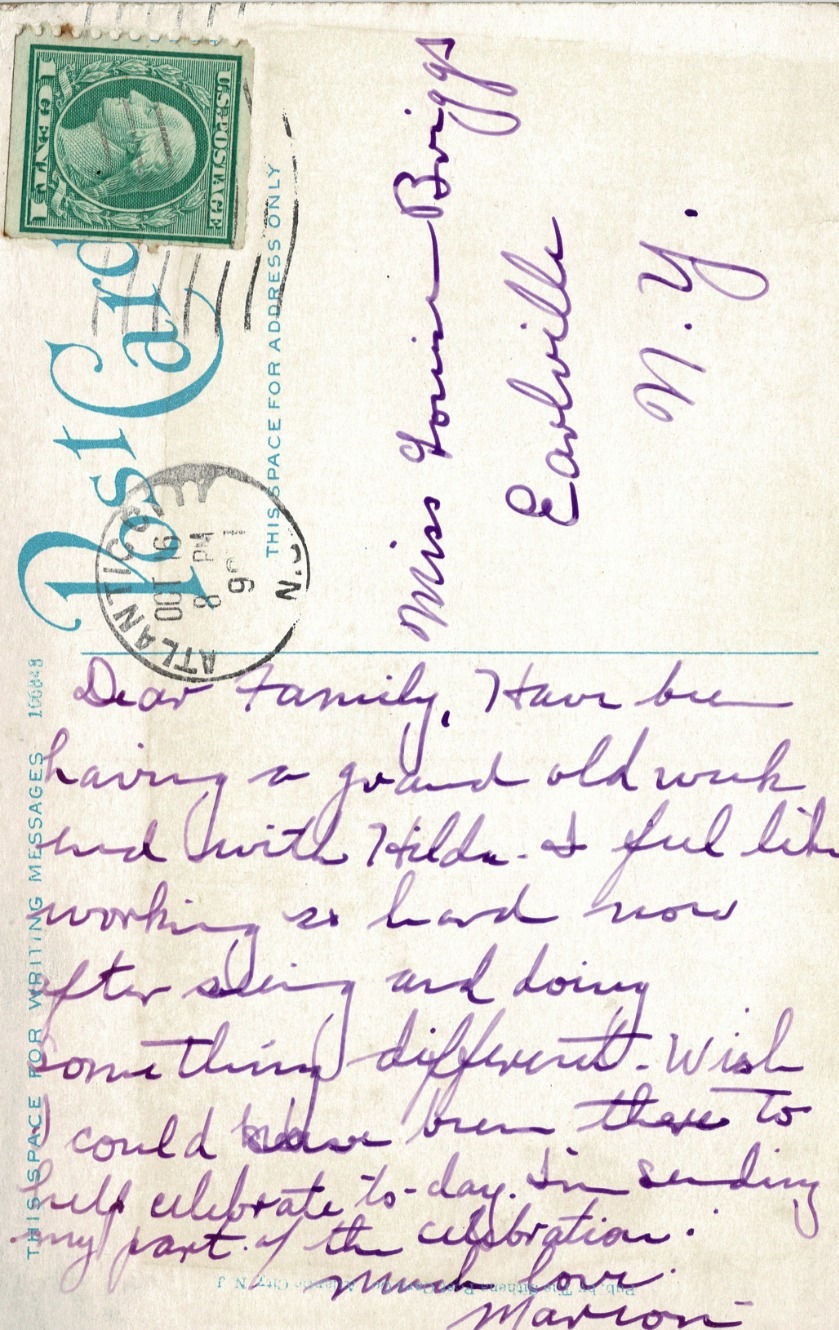 U.S. POSTAGE
1 CENT 1
Post Card
THIS SPACE FOR ADDRESS ONLY
ATLANTIC
OCT 16
8 PM
N.J.
Miss Louise Briggs
Earlville
N.Y.
THIS SPACE FOR WRITING MESSAGES
100848
Dear Family, Have been
having a grand old week
end with Hilda. I feel like
working so hard now
after seeing and doing
something different. Wish
I could have been there to
help celebrate to-day. I'm sending
my part of the celebration.
Much love.
Marion
Pub. by The City, N.J.